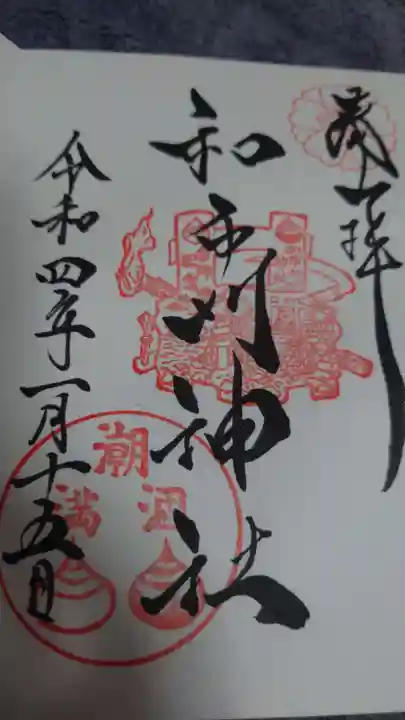 奉拝
和布刈神社
令和四年一月十五日
潮
満
涸